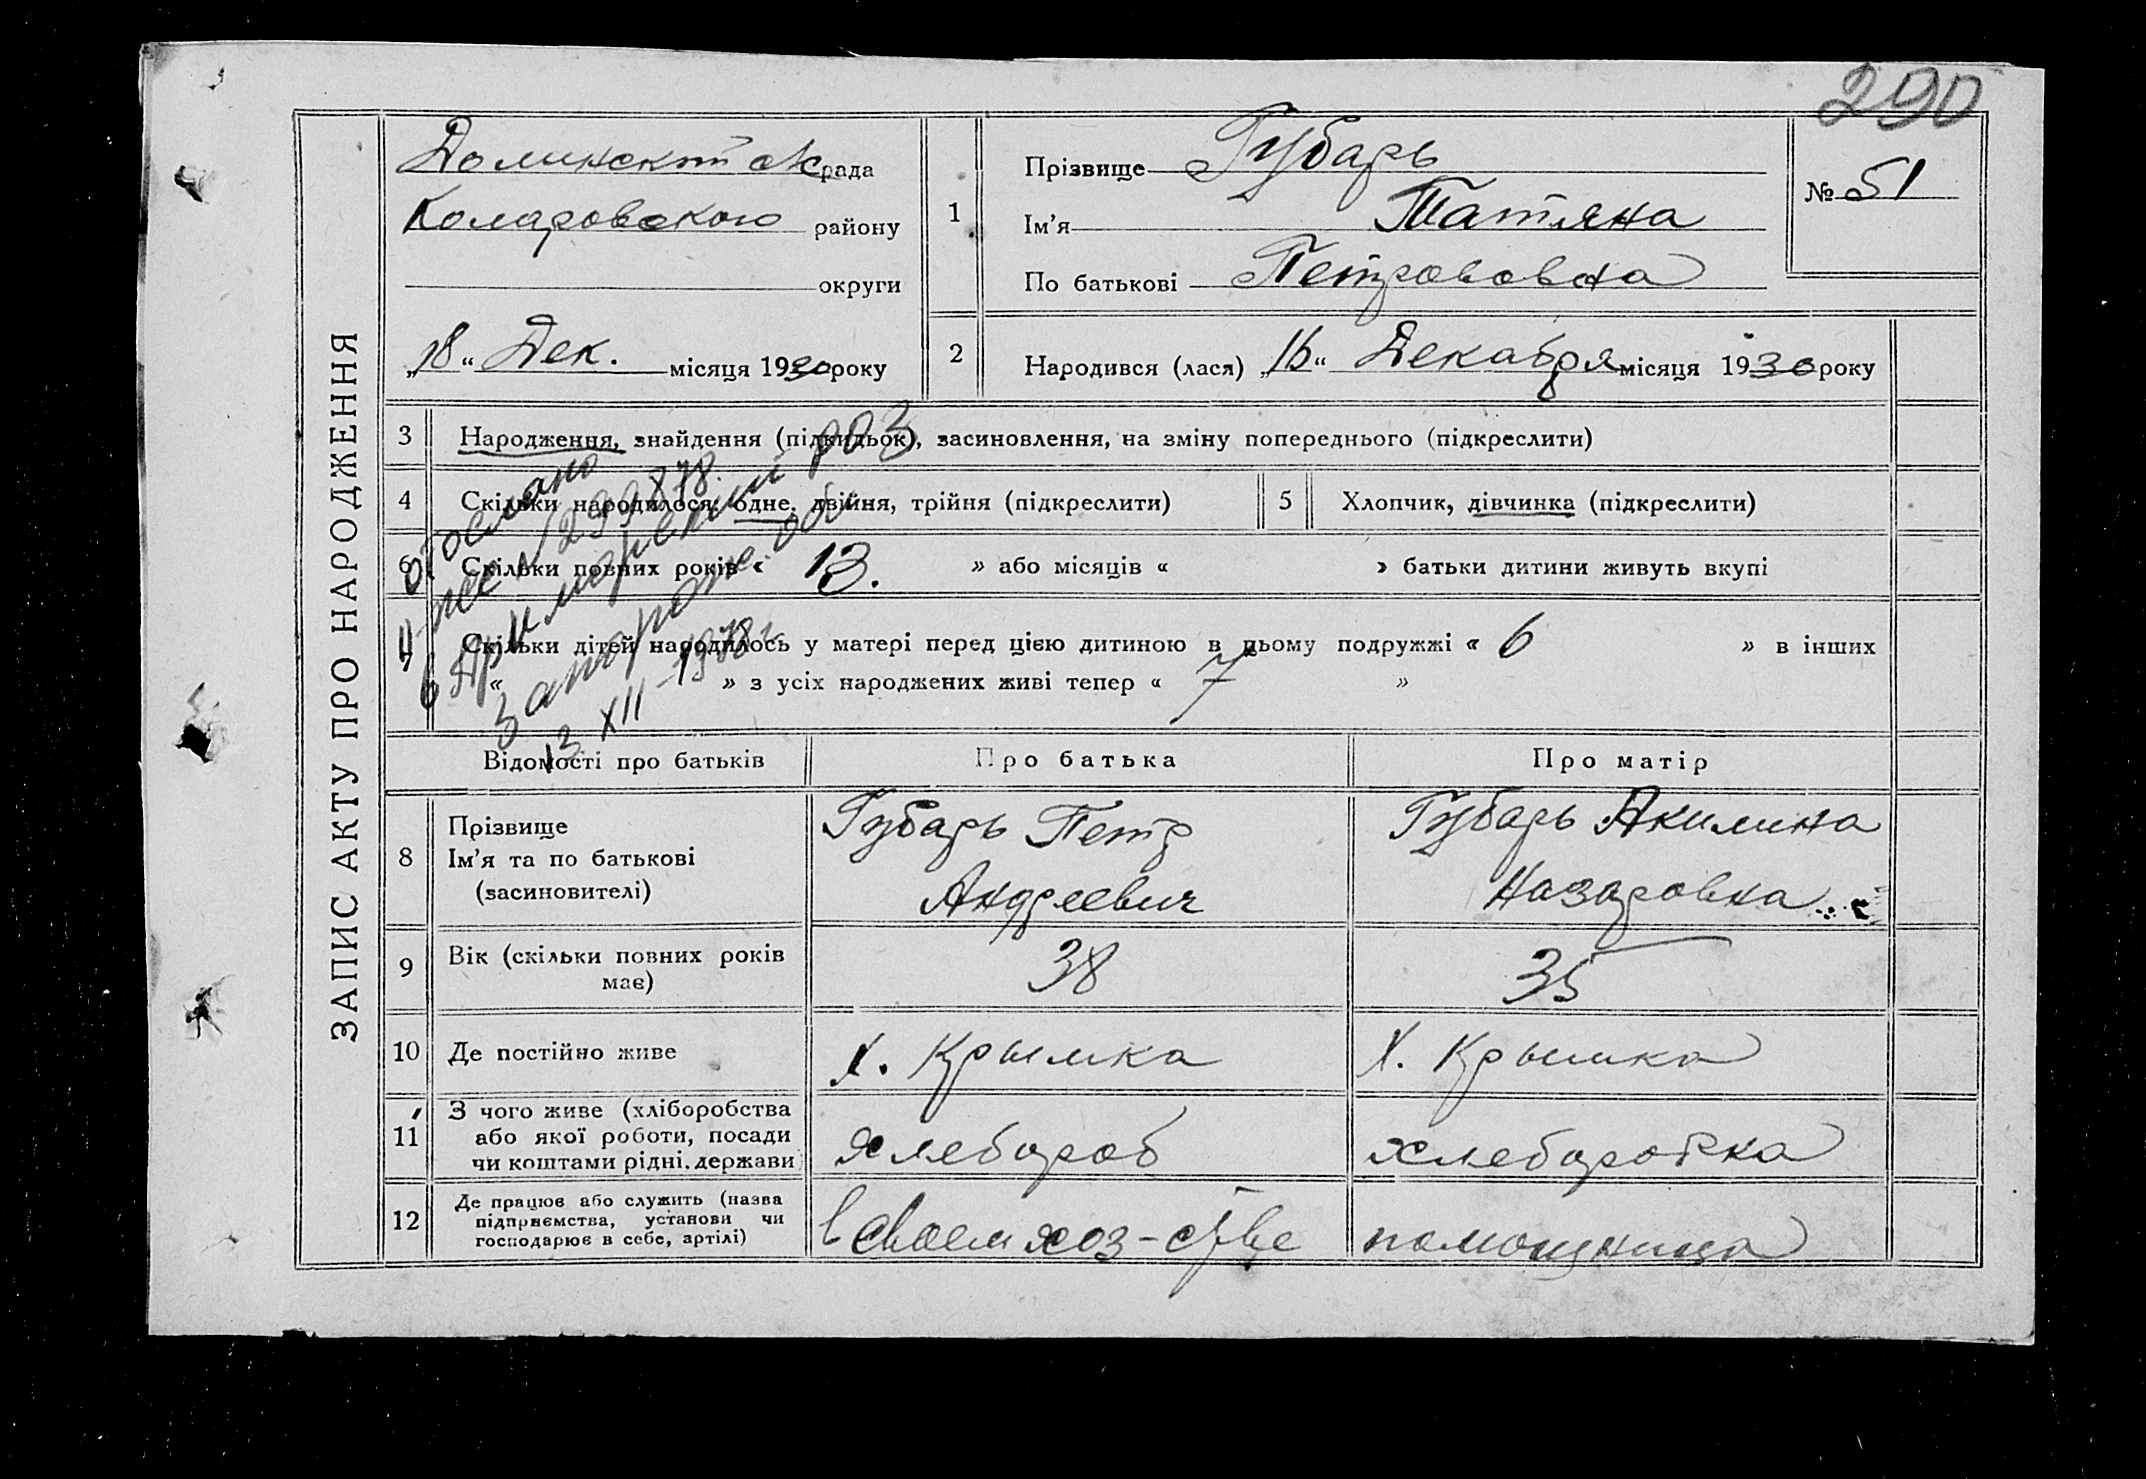 290
ЗАПИС АКТУ ПРО НАРОДЖЕННЯ
рада
Коларовского району
округи
„18“ Дек. місяця 1930 року
1
Прізвище Губарь
Ім'я Татяна
По батькові Петрововна
№ 51
2
Народився (лася) „16“ Декабря місяця 1930 року
3 Народження, знайдення (підкидьок), засиновлення, на зміну попереднього (підкреслити)
4 Скільки народилося: одне, двійня, трійня (підкреслити)
5 Хлопчик, дівчинка (підкреслити)
6 Скільки повних років « 13. » або місяців « » батьки дитини живуть вкупі
Скільки дітей народилось у матері перед цією дитиною в цьому подружжі « 6 » в інших
« » з усіх народжених живі тепер « 7 »
отослано
в Приморский РОЗ
Запорож. обл
13 XII-1978 г
Відомості про батьків Про батька Про матір
8 Прізвище
Ім'я та по батькові
(засиновителі)
Губарь Петр
Андреевич
Губарь Акилина
Назаровна
9 Вік (скільки повних років
має)
38
35
10 Де постійно живе
х. Крымка
х. Крымка
11 З чого живе (хліборобства
або якої роботи, посади
чи коштами рідні, держави
хлебороб
хлеборобка
12 Де працює або служить (назва
підприємства, установи чи
господарює в себе, артілі)
в своем хоз-стве
помощница